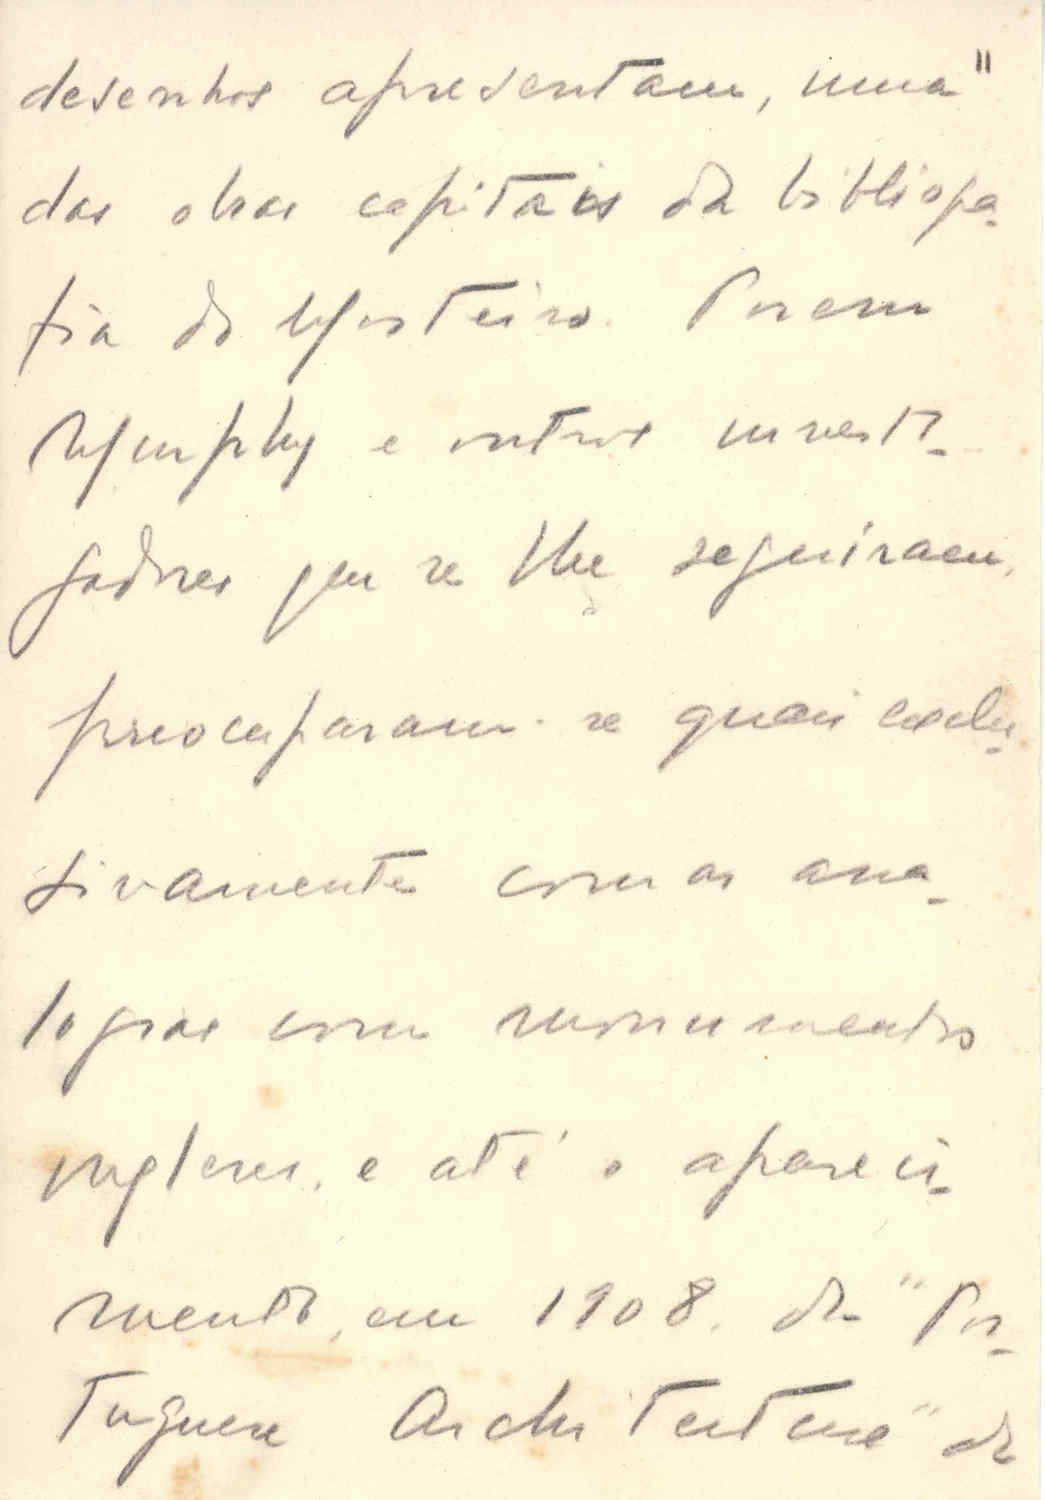 desenhos apresentam, uma"
das obras capitais da bibliogra-
fia do Mosteiro. Porem
Murphy e outros investi-
gadores que se lhe seguiram,
preocuparam-se quasi exclu-
sivamente com as ana-
logias com monumentos
ingleses, e até o apareci-
mento, em 1908, da "Por-
tuguese Architecture" de